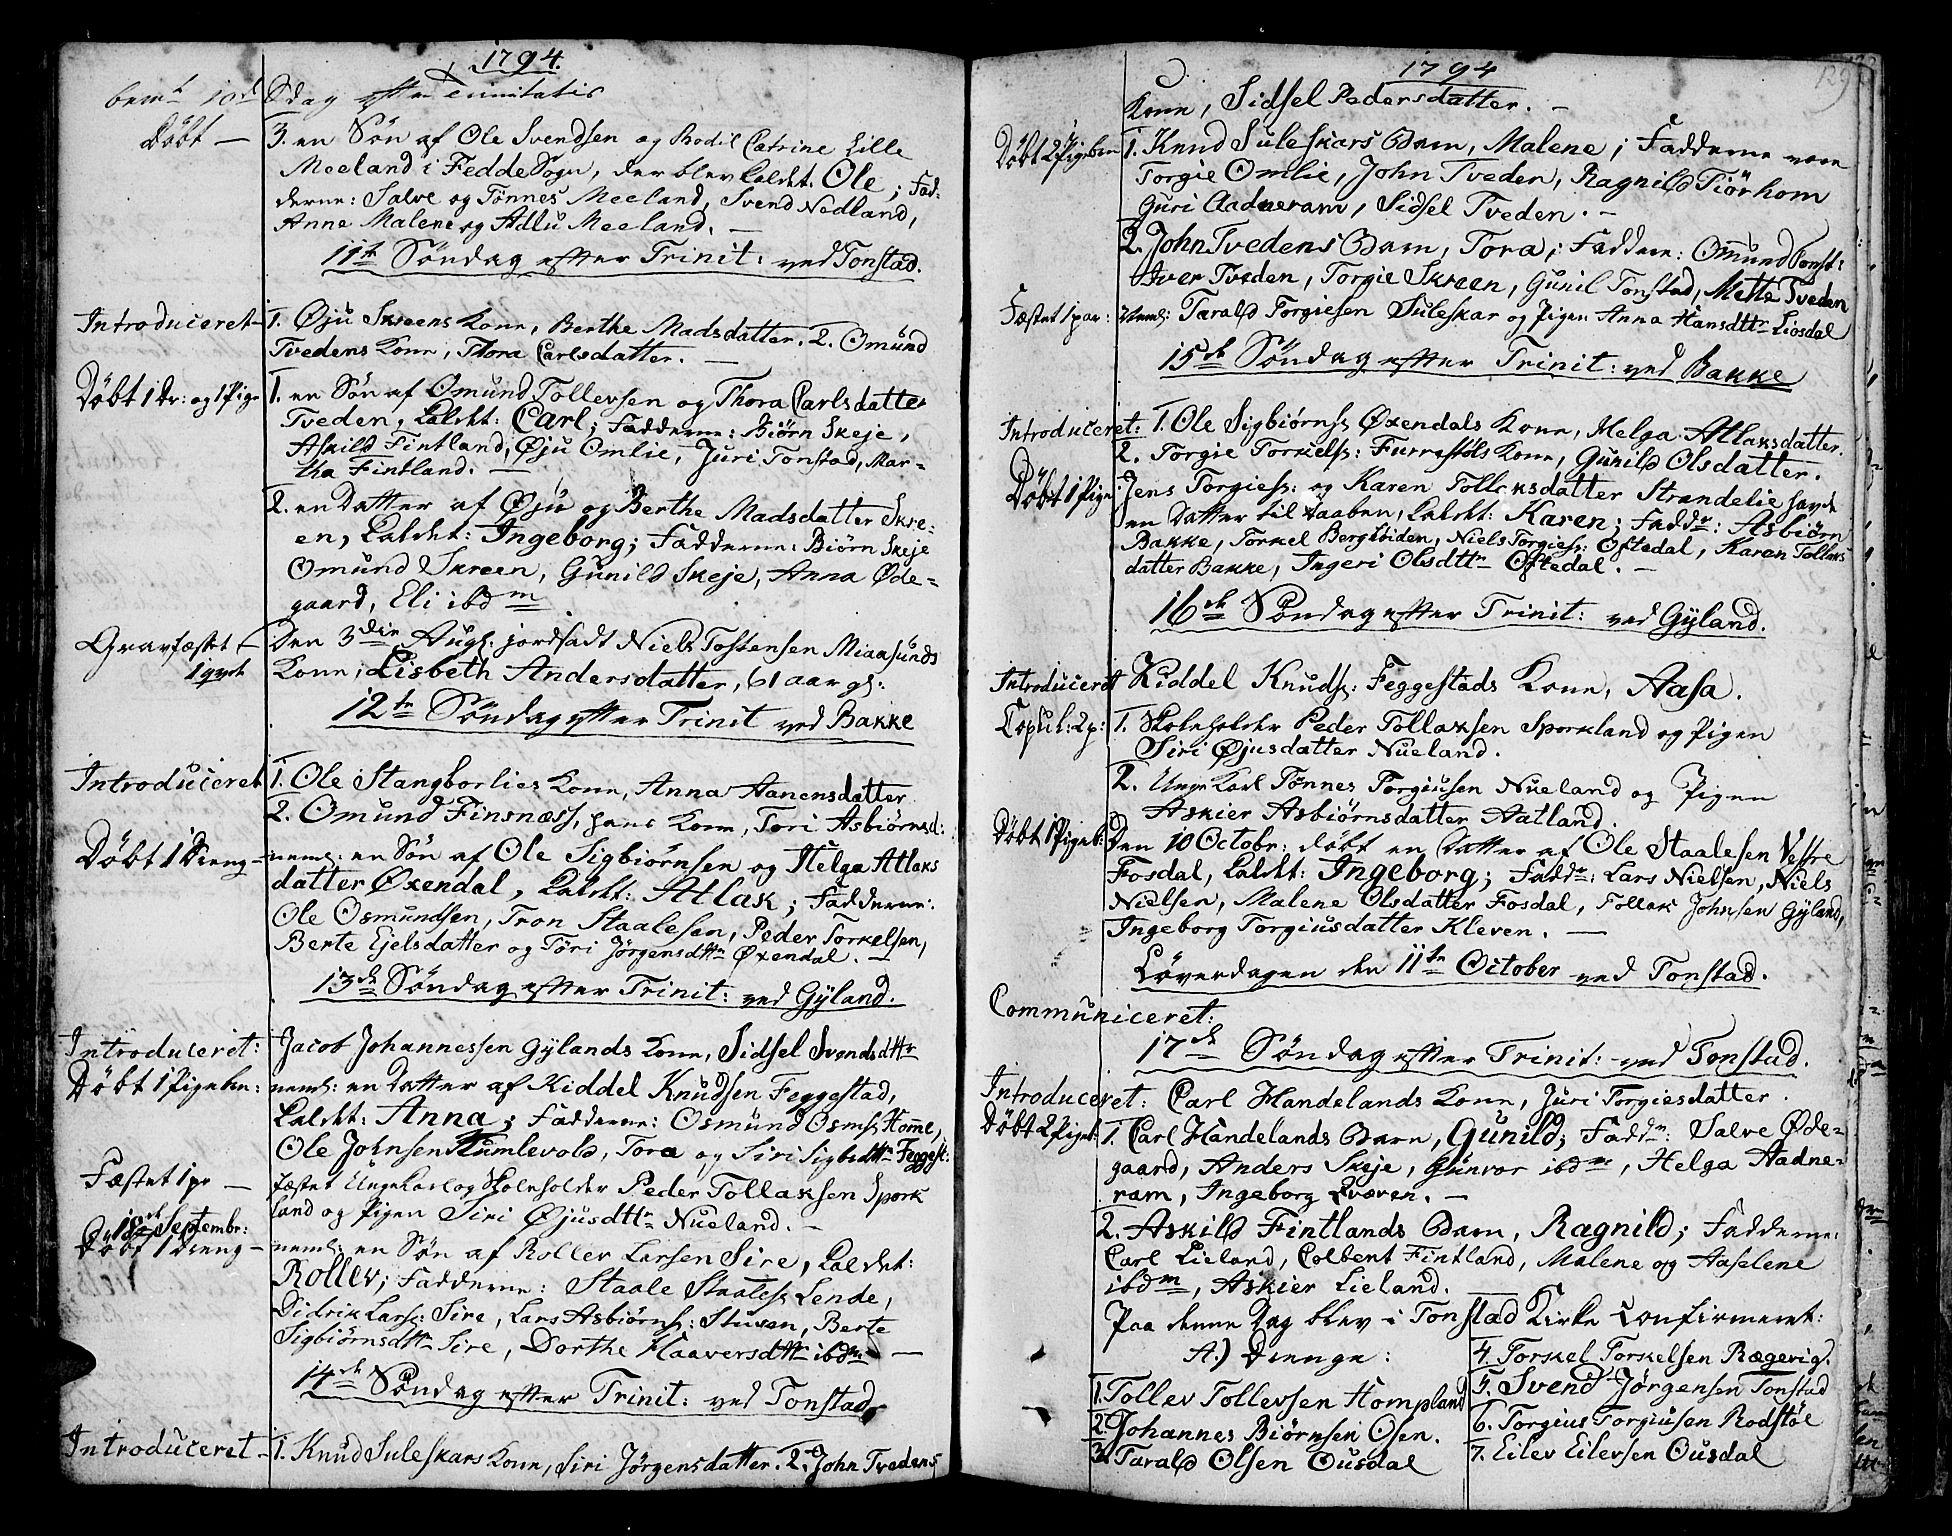 1794.
bemt 10d Sdag efter Trinitatis
Döbt — 3. en Sön af Ole Svendsen og Bodil Catrine Lille
Meeland i Fedde Sogn, der blev kaldet Ole; Fad-
derne: Salve og Tönnes Meeland, Svend Nedland,
Anne Malene og Adlu Meeland. —
11te Söndag efter Trinit: ved Tonstad.
Introduceret— 1. Øju Skreens Kone, Berthe Madsdatter. 2. Omund
Tvedens Kone, Thora Carlsdatter. —
Döbt 1 Dr: og 1 Pige 1. en Sön af Omund Tollevsen og Thora Carlsdatter
Tveden, kaldet: Carl; Fadderne: Biörn Skeje,
Askild Fintland, Øju Omlie, Juri Tonstad, Mar-
tha Fintland. —
2. en Datter af Øju og Berthe Madsdatter Skre-
en, kaldet: Ingeborg; Fadderne: Biörn Skeje
Omund Skreen, Gunild Skeje, Anna Øde-
gaard, Eli ibdm
Gravfæstet — Den 3die Augs. jordsadt Niels Tostensen Miaasunds
1 qvde Kone, Lisbeth Andersdatter, 61 aar gl:
12te Söndag efter Trinit ved Bakke
Introduceret 1. Ole Stangborlies Kone, Anna Aanensdatter
2. Omund Finsnæss, hans Kone, Tori Asbiörnsd:
Döbt 1 Dreng— neml: en Sön af Ole Sigbiørnsen og Helga Atlaks
datter Øxendal, kaldet: Atlak; Fadderne:
Ole Osmundsen, Tron Staalesen, Peder Torkelsen,
Berte Ejelsdatter og Töri Jörgensdttr Øxendal. —
13de Söndag efter Trinit: ved Gyland.
Introduceret: Jacob Johannessen Gylands Kone, Sidsel Svendsdttr
Döbt 1 Pigebn: neml: en Datter af Kiddel Knudsen Feggestad,
kaldet: Anna; Fadderne: Osmund Osms: Homme,
Ole Johnsen Kumlevold, Tora og Siri Sigbdttr Feggest:
Fæstet 1 pr — fæstet Ungekarl og Skoleholder Peder Tollaksen Spork
land og Pigen Siri Øjusdttr Nueland. —
18de Septembr:
Döbt 1 Dreng — neml: en Sön af Rollev Larsen Sire, kaldet:
Rollev; Fadderne: Staale Staaless Lende,
Didrik Larss: Sire, Lars Asbiörns: Stuven, Berte
Sigbiörnsdttr Sire, Dorthe Haaversdttr ibdm —
14de Söndag efter Trinit: ved Tonstad.
Introduceret — 1. Knud Suleskars Kone, Siri Jörgensdatter. 2. John Tvedens
1794
129
Kone, Sidsel Pedersdatter. —
Döbt 2 Pigebn 1. Knud Suleskars Barn, Malene; Fadderne vare
Torgie Omlie, John Tveden, Ragnild Tiörhom
Guri Aadneram, Sidsel Tveden. —
2. John Tvedens Barn, Tora; Faddere: Omund Tonst:
Iver Tveden, Torgie Skreen, Gunil Tonstad, Mette Tveden
Fæstet 1 par: neml: Tarald Torgiesen Suleskar og Pigen Anna Hansdttr Liosdal
15de Söndag efter Trinit: ved Bakke
Introduceret: 1. Ole Sigbiörns: Øxendals Kone, Helga Atlaksdatter.
2. Torgie Torkels: Furrestöls Kone, Gunild Olsdatter.
Döbt 1 Pige: Jens Torgiess: og Karen Tollaksdatter Strandelie havde
en Datter til Daaben, kaldet: Karen; Faddr: Asbiörn
Bakke, Torkel Bergebiden, Niels Torgiess: Oftedal, Karen Tollaks
datter Bakke, Ingeri Olsdttr Oftedal. —
16de Söndag efter Trinit: ved Gyland.
Introduceret Kiddel Knuds: Feggestads Kone, Aasa.
Copul: 2 p: 1. Skoleholder Peder Tollaksen Sporkland og Pigen
Siri Øjusdatter Nueland.
2. Unge Karl Tönnes Torgiusen Nueland og Pigen
Askier Asbiörnsdatter Aatland.
Döbt 1 Pigeb: Den 10 Octobr: döbt en Datter af Ole Staalesen Vestre
Fosdal, kaldet: Ingeborg; Faddr: Lars Nielsen, Niels
Nielsen, Malene Olsdatter Fosdal, Tollak Johnsen Gyland,
Ingeborg Torgiusdatter Kleven. —
Löverdagen den 11te October ved Tonstad.
Communiceret:
17de Söndag efter Trinit: ved Tonstad.
Introduceret: Carl Handelands Kone, Juri Torgiesdatter.
Döbt 2 Piger: 1. Carl Handelands Barn, Gunild; Faddr: Salve Øde-
gaard, Anders Skeje, Gunvor ibdm, Helga Aadne-
ram, Ingeborg Qvæven. —
2. Askild Fintlands Barn, Ragnild; Fadderne:
Carl Lieland, Colbent Fintland, Malene og Aaselene
ibdm, Askier Lieland.
Paa denne Dag blev i Tonstad Kirke Confirmeret:
A.) Drenge:
1. Tollev Tollevsen Hompland
2. Johannes Biörnsen Osen.
3. Tarald Olsen Ousdal
4. Torkel Torkelsen Rægevig.
5. Svend Jörgensen Tonstad
6. Torgius Torgiusen Rodstöl
7. Eilev Eilevsen Ousdal